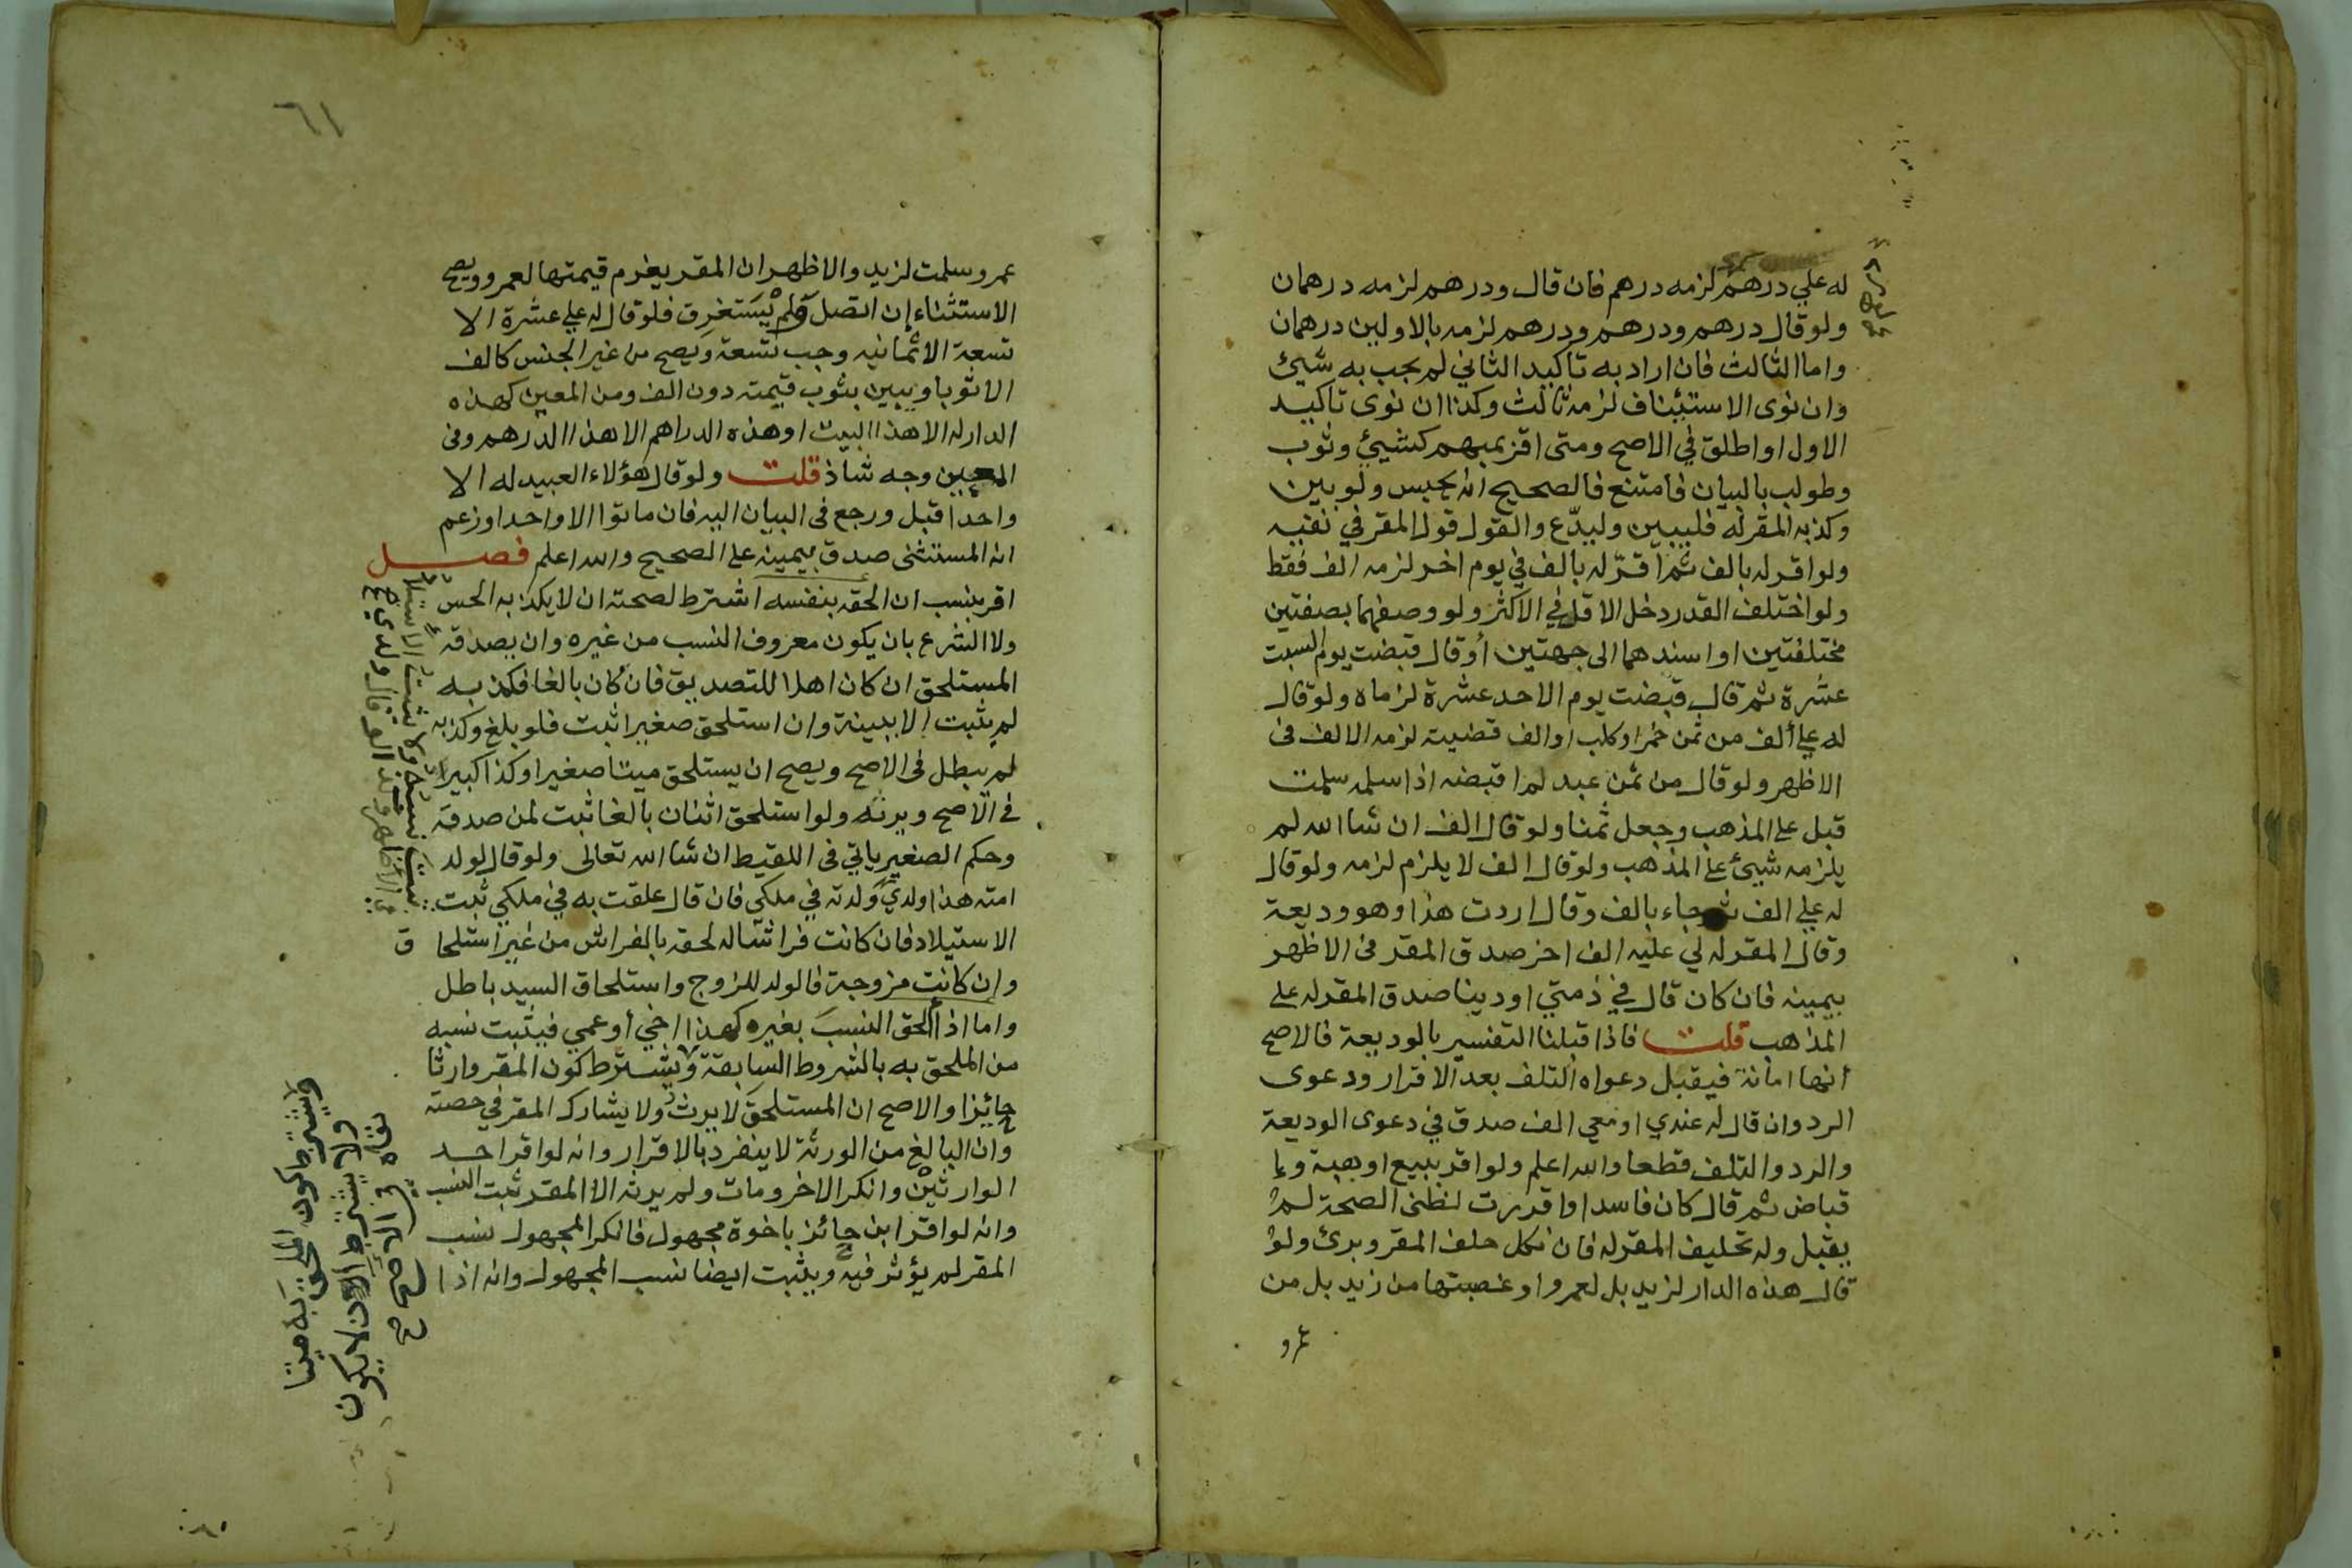 له علي درهم لزمه درهم فان قال ودرهم لزمه درهمان
ولو قال درهم ودرهم ودرهم لزمه بالاولين درهمان
واما الثالث فان اراد به تاكيد الثاني لم يجب به شيئ
وان نوى الاستيناف لزمه ثالث وكذا ان نوى تاكيد
الاول او اطلق في الاصح ومتى اقر بمبهم كشيئ وثوب
وطولب بالبيان فامتنع فالصحيح انه يحبس ولو بين
وكذبه المقر له فليبين وليدّع والقول قول المقر في نفيه
ولو اقر له بالف ثم اقرّ له بالف في يوم اخر لزمه الف فقط
ولو اختلف القدر دخل الاقل في الاكثر ولو وصفهما بصفتين
مختلفتين او اسندهما الى جهتين أو قال قبضت يوم السبت
عشرة ثم قال قبضت يوم الاحد عشرة لزماه ولو قال
له علي ألف من ثمن خمر او كلب او الف قضيته لزمه الالف في
الاظهر ولو قال من ثمن عبد لم اقبضه اذا سلمه سلمت
قبل على المذهب وجعل ثمنا ولو قال الف ان شا الله لم
يلزمه شيئ على المذهب ولو قال الف لا يلزم لزمه ولو قال
له علي الف ثم جاء بالف وقال اردت هذا وهو وديعة
وقال المقر له لي عليه الف اخر صدق المقر في الاظهر
بيمينه فان كان قال في ذمتي او دينا صدق المقر له على
المذهب قلت فاذا قبلنا التفسير بالوديعة فالاصح
انها امانة فيقبل دعواه التلف بعد الاقرار ودعوى
الرد وان قال له عندي او معي الف صدق في دعوى الوديعة
والرد والتلف قطعا والله اعلم ولو اقر ببيع او بهبة وا
قباض ثم قال كان فاسدا واقررت لظني الصحة لم
يقبل وله تحليف المقر له فان نكل حلف المقر وبرئ ولو
قال هذه الدار لزيد بل لعمرو او غصبتها من زيد بل من
عمرو
٦١
عمرو سلمت لزيد والاظهر ان المقر يغرم قيمتها لعمرو ويصح
الاستثناء إن اتصل ولم يستغرق فلو قال له علي عشرة الا
تسعة الا ثمانيه وجب تسعة ويصح من غير الجنس كالف
الا ثوبا ويبين بثوب قيمته دون الف ومن المعين كهذه
الدار له الا هذا البيت او هذه الدراهم الا هذا الدرهم وفي
المعين وجه شاذ قلت ولو قال هؤلاء العبيد له الا
واحدا قبل ورجع في البيان اليه فان ماتوا الا واحدا وزعم
انه المستثنى صدق بيمينه على الصحيح والله اعلم فصل
اقر بنسب ان الحقه بنفسه اشترط لصحته ان لا يكذبه الحس
ولا الشرع بان يكون معروف النسب من غيره وان يصدقه
المستلحق ان كان اهلا للتصديق فان كان بالغا فكذبه
لم يثبت الا ببينة وان استلحق صغيرا ثبت فلو بلغ وكذبه
لم يبطل في الاصح ويصح ان يستلحق ميتا صغيرا وكذا كبيرا
في الاصح ويرثه ولو استلحق اثنان بالغا ثبت لمن صدقه
وحكم الصغير ياتي في اللقيط ان شا الله تعالى ولو قال لولد
امته هذا ولدي ولدته في ملكي فان قال علقت به في ملكي ثبت
الاستيلاد فان كانت فراشا له لحقه بالفراش من غير استلحا ق
وان كانت مزوجة فالولد للزوج واستلحاق السيد باطل
واما اذا الحق النسب بغيره كهذا اخي أو عمي فيثبت نسبه
من الملحق به بالشروط السابقة ويشترط كون المقر وارثا
حائزا والاصح ان المستلحق لا يرث ولا يشارك المقر في حصته
وان البالغ من الورثة لا ينفرد بالاقرار وانه لو اقر احد
الوارثين وانكر الاخر ومات ولم يرثه الا المقر ثبت النسب
وانه لو اقر ابن حائز باخوة مجهول فانكر المجهول نسب
المقر لم يؤثر فيه ويثبت ايضا نسب المجهول وانه اذا
ويشترط كون الملحق به ميتا
ولا يشترط ان لا يكون
نفاه في الاصح صح